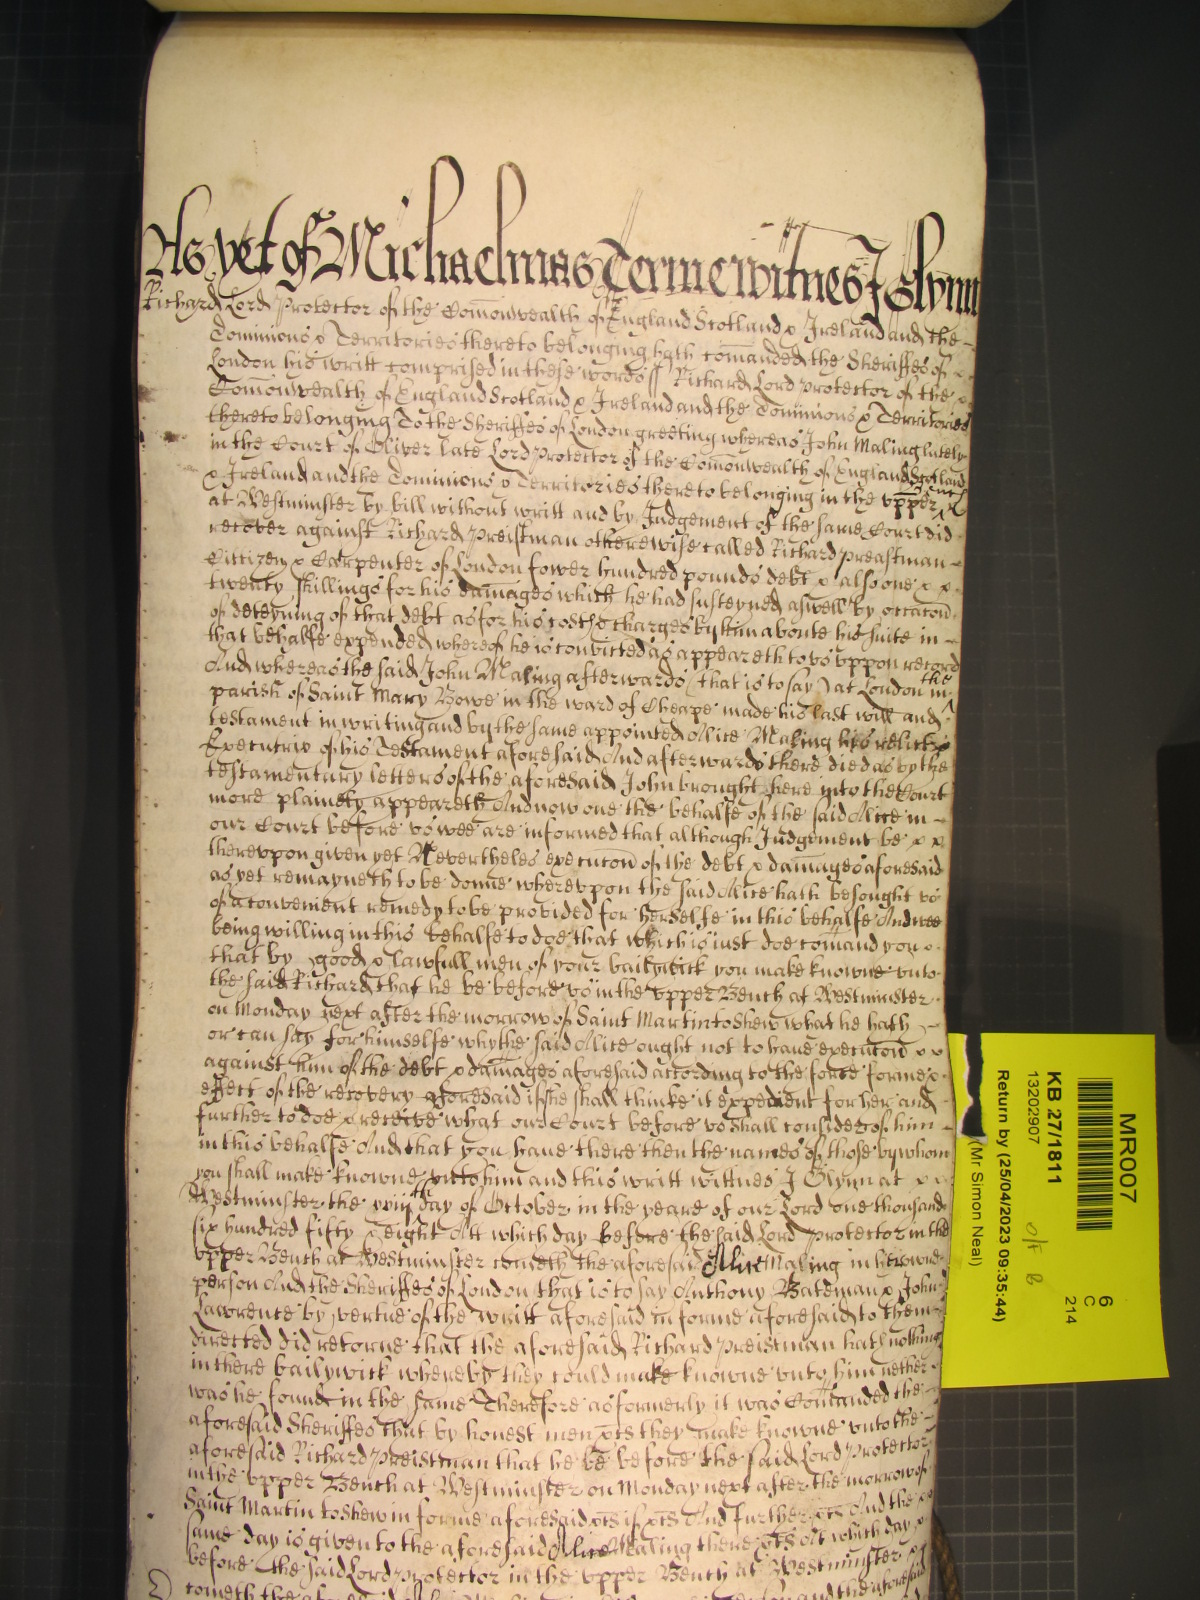 As yet of Michaelmas Terme witnes J Glynn
Richard Lord Protector of the Com̄onwealth of England Scotland & Ireland and the
Dominions & Territories thereto belonging hath com̄anded the Sheriffes of
London his writt comprised in these words ss Richard Lord Protector of the
Com̄onwealth of England Scotland & Ireland and the Dominions & Territories
thereto belonging To the Sheriffes of London greeting whereas John Maling lately
in the Court of Oliver late Lord Protector of the Com̄onwealth of England Scotland
& Ireland and the Dominions & Territories thereto belonging in the vpper Bench
at Westminster by bill without writt and by Judgement of the same Court did
recover against Richard Preistman otherewise called Richard Preastman
Cittizen & Carpenter of London fower hundred pounds debt & also one & &
twenty shillings for his dam̄ages which he had susteyned aswell by occacōn
of deteyning of that debt as for his costs & charges by him aboute his suite in
that behalfe expended whereof he is convicted as appeareth to vs vppon record
And whereas the said John Maling afterwards (that is to say) at London in the
parish of Saint Mary Bowe in the ward of Cheape made his last will and
testament in writing and by the same appointed Alice Maling his relict &
Executrix of his Testament aforesaid And afterwards there died as by the
testamentary letters of the aforesaid John brought here into the Court
more plainely appeareth And now one the behalfe of the said Alice in
our Court before vs wee are informed that although Judgement be & &
therevpon given yet Nevertheles execucōn of the debt & dam̄ages aforesaid
as yet remayneth to be donne wherevpon the said Alice hath besought vs
of a convenient remedy to be provided for herselfe in this behalfe And wee
being willing in this behalfe to doe that which is just doe com̄and you &
that by good & lawfull men of your bailywick you make knowne vnto
the said Richard that he be before vs in the vpper Bench at Westminster
on Monday next after the morrow of Saint Martin to shew what he hath
or can say for himselfe why the said Alice ought not to haue execucōn & &
against him of the debt & dam̄ages aforesaid according to the force forme &
effect of the recovery aforesaid if she shall thinke it expedient for her and
further to doe & receive what our Court before vs shall consider of him
in this behalfe And that you haue there then the names of those by whom
you shall make knowne vnto him and this writt wittnes J Glynn at & &
Westminster the xviijth day of October in the yeare of our Lord one thousand
six hundred fifty & eight Att which day before the said Lord Protector in the
vpper Bench at Westminster cometh the aforesaid Alice Maling in her owne
person And the Sheriffes of London that is to say Anthony Bateman & John
Lawrence by vertue of the writt aforesaid in forme aforesaid to them
directed did retorne that the aforesaid Richard Preistman hath nothing
in there bailywick whereby they could make knowne vnto him nether
was he found in the same Therefore as formerly it was Com̄anded the
aforesaid Sheriffes that by honest men &ts they make knowne vnto the
aforesaid Richard Preistman that he be before the said Lord Protector
in the vpper Bench at Westminster on Monday next after the morrow of
Saint Martin to shew in forme aforesaid &ts if &ts And further &ts And the
same day is given to the aforesaid Alice Maling there &ts Att which day
before the said Lord Protector in the vpper Bench at Westminster
cometh the
MR007
6
C
214
KB 27/1811
13202907
Return by (25/04/2023 09:35:44)
(Mr Simon Neal)